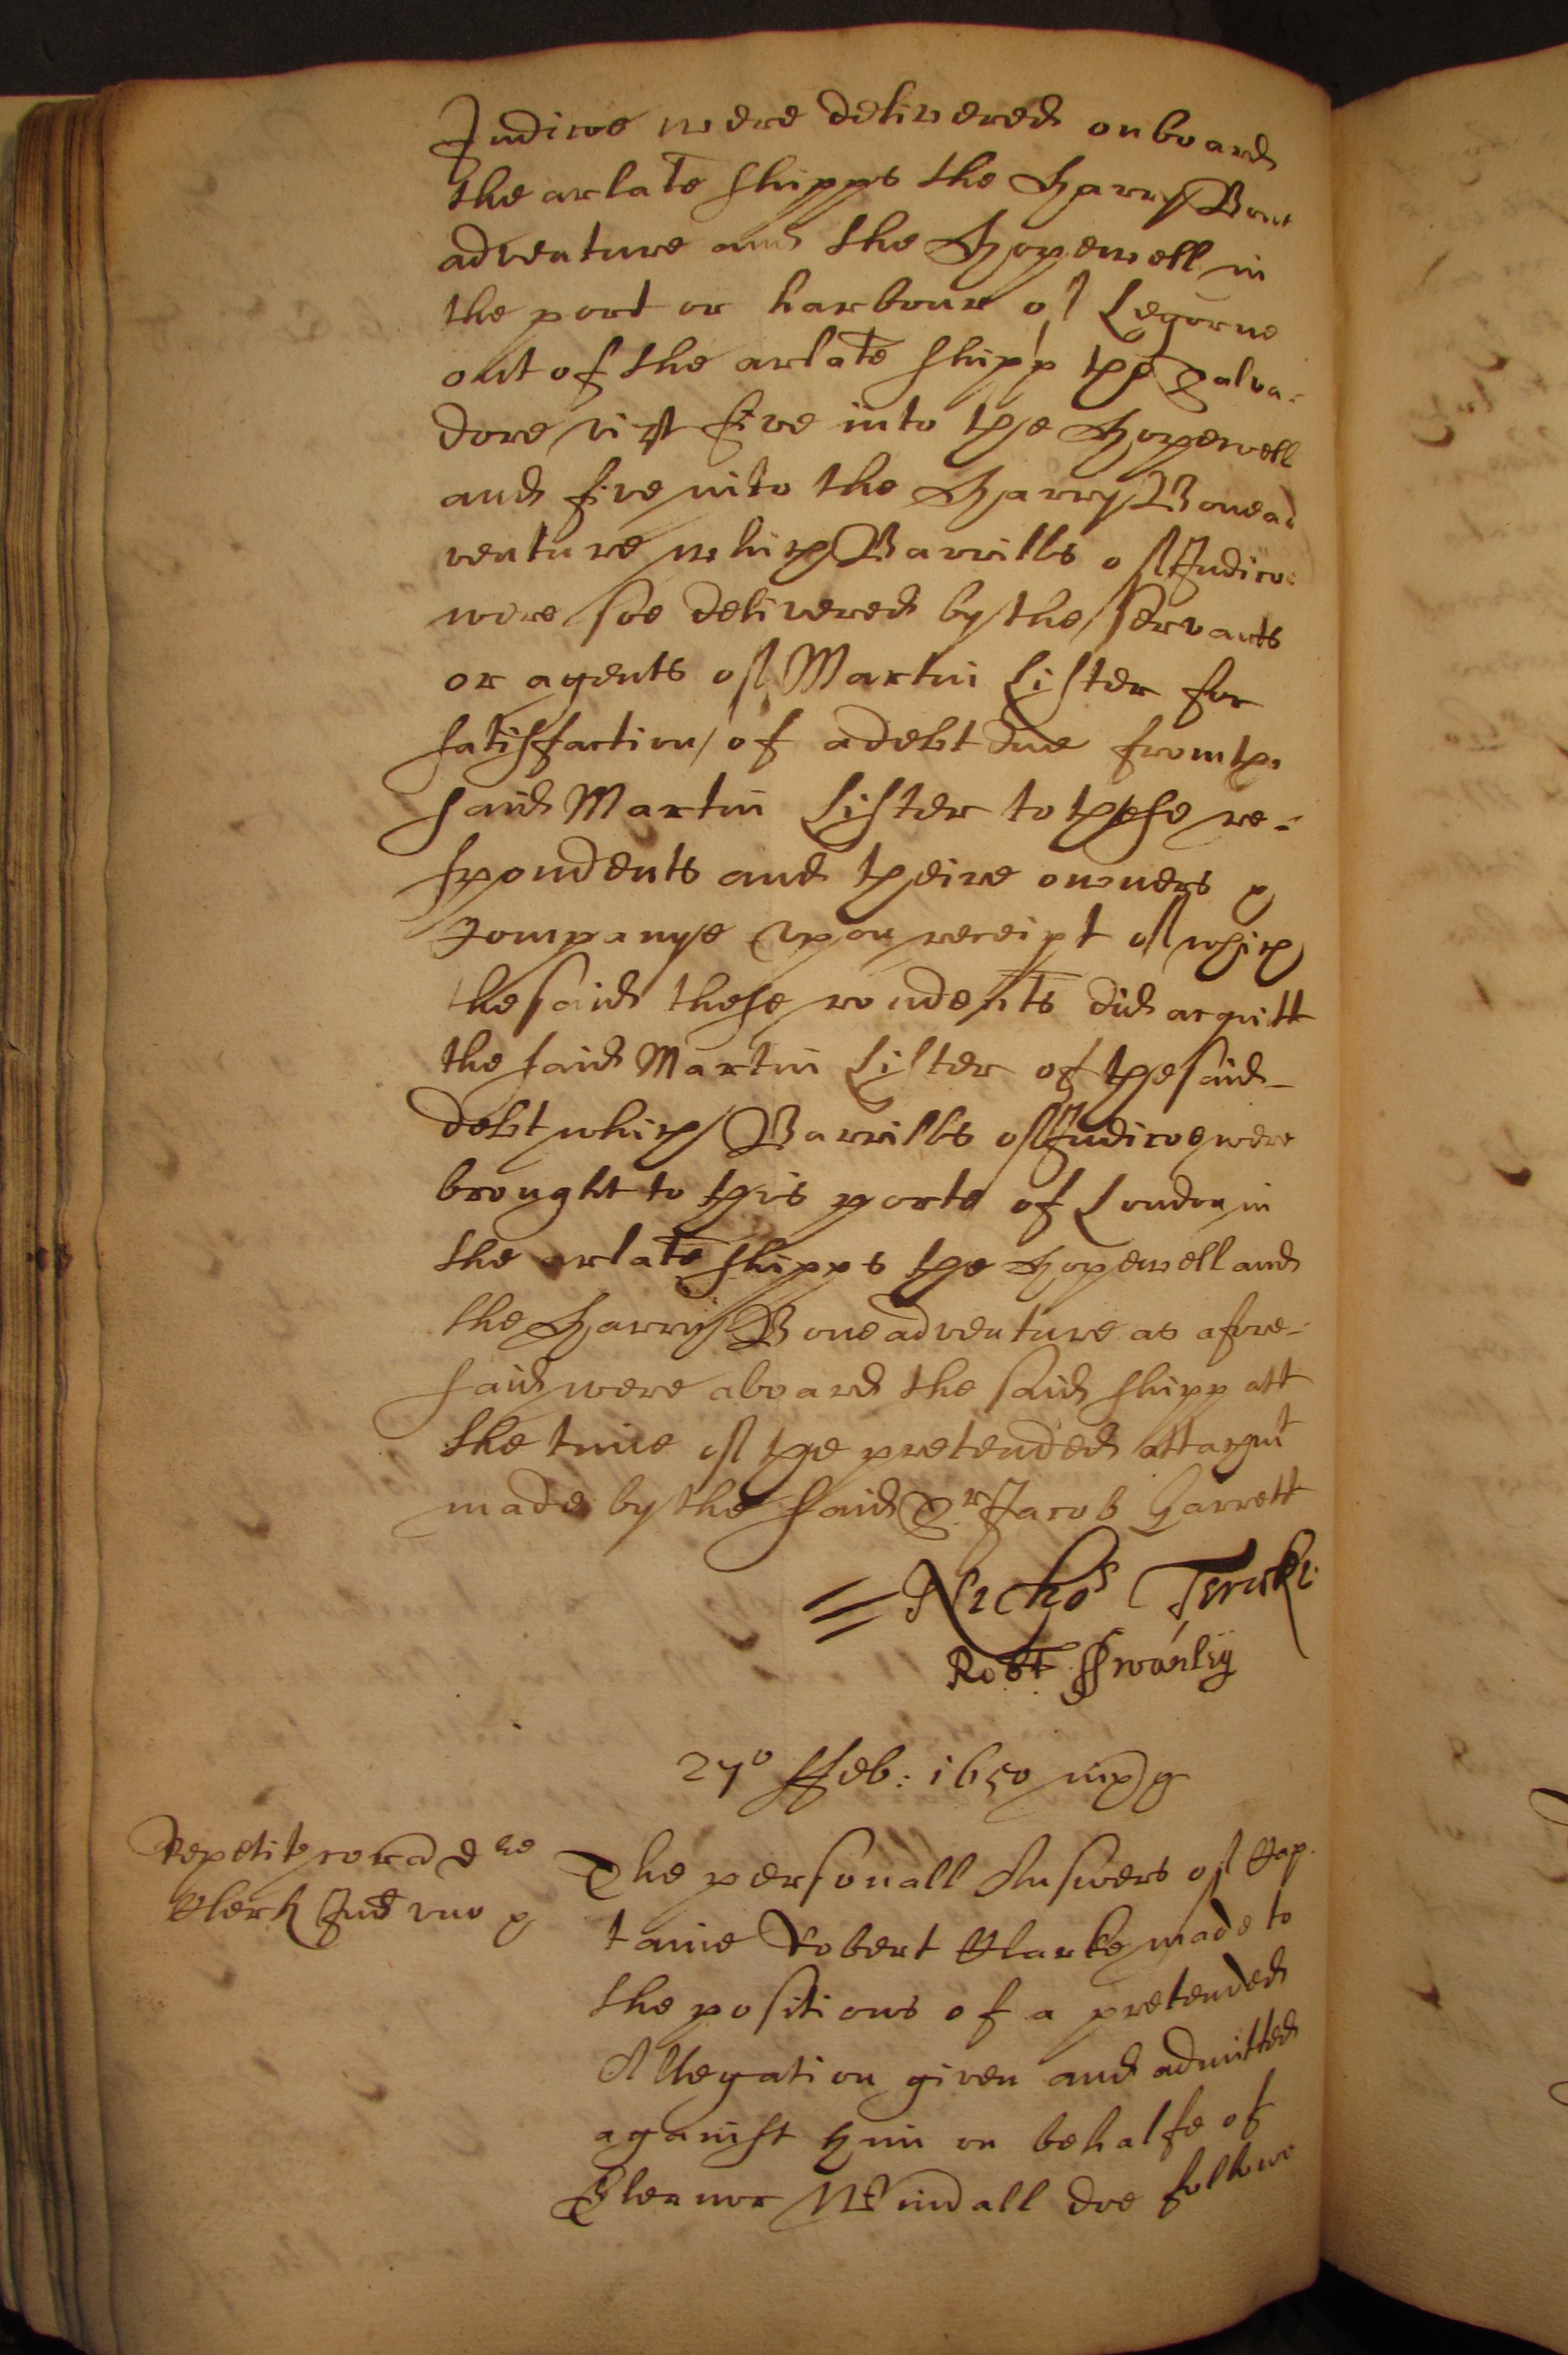 Indicoe were delivered on board
the arlate shipps the Harry Bone
adventure and the Hopewell in
the port or harbour of Legorne
out of the arlate shipp the Salva-
dore vizt five into the Hopewell
and five into the Harry Bonead
venture which Barrills of Indicoe
were soe delivered by the servants
or agents of Martin Lister for
satisfaction of a debt due from the
said Martin Lister to these re-
spondents and theire owners &
Companye upon receipt of which
the said these rondents did acquitt
the said Martin Lister of the said
debt which Barrills of Indicoe were
brought to this porte of London in
the arlate shipps the Hopewell and
the Harry Boneadventure as afore-
said were aboard the said shipp att
the time of the pretended attachmt
made by the said Sr Jacob Garrett
Nichos
Robt Swanley
27o ffeb: 1650
Repetit cora
Clerk Jud
The personall Answers of Cap-
taine Robert Clarke made to
the positions of a pretended
Allegation given and admitted
against him on behalfe of
Eleanor Windall doe followe